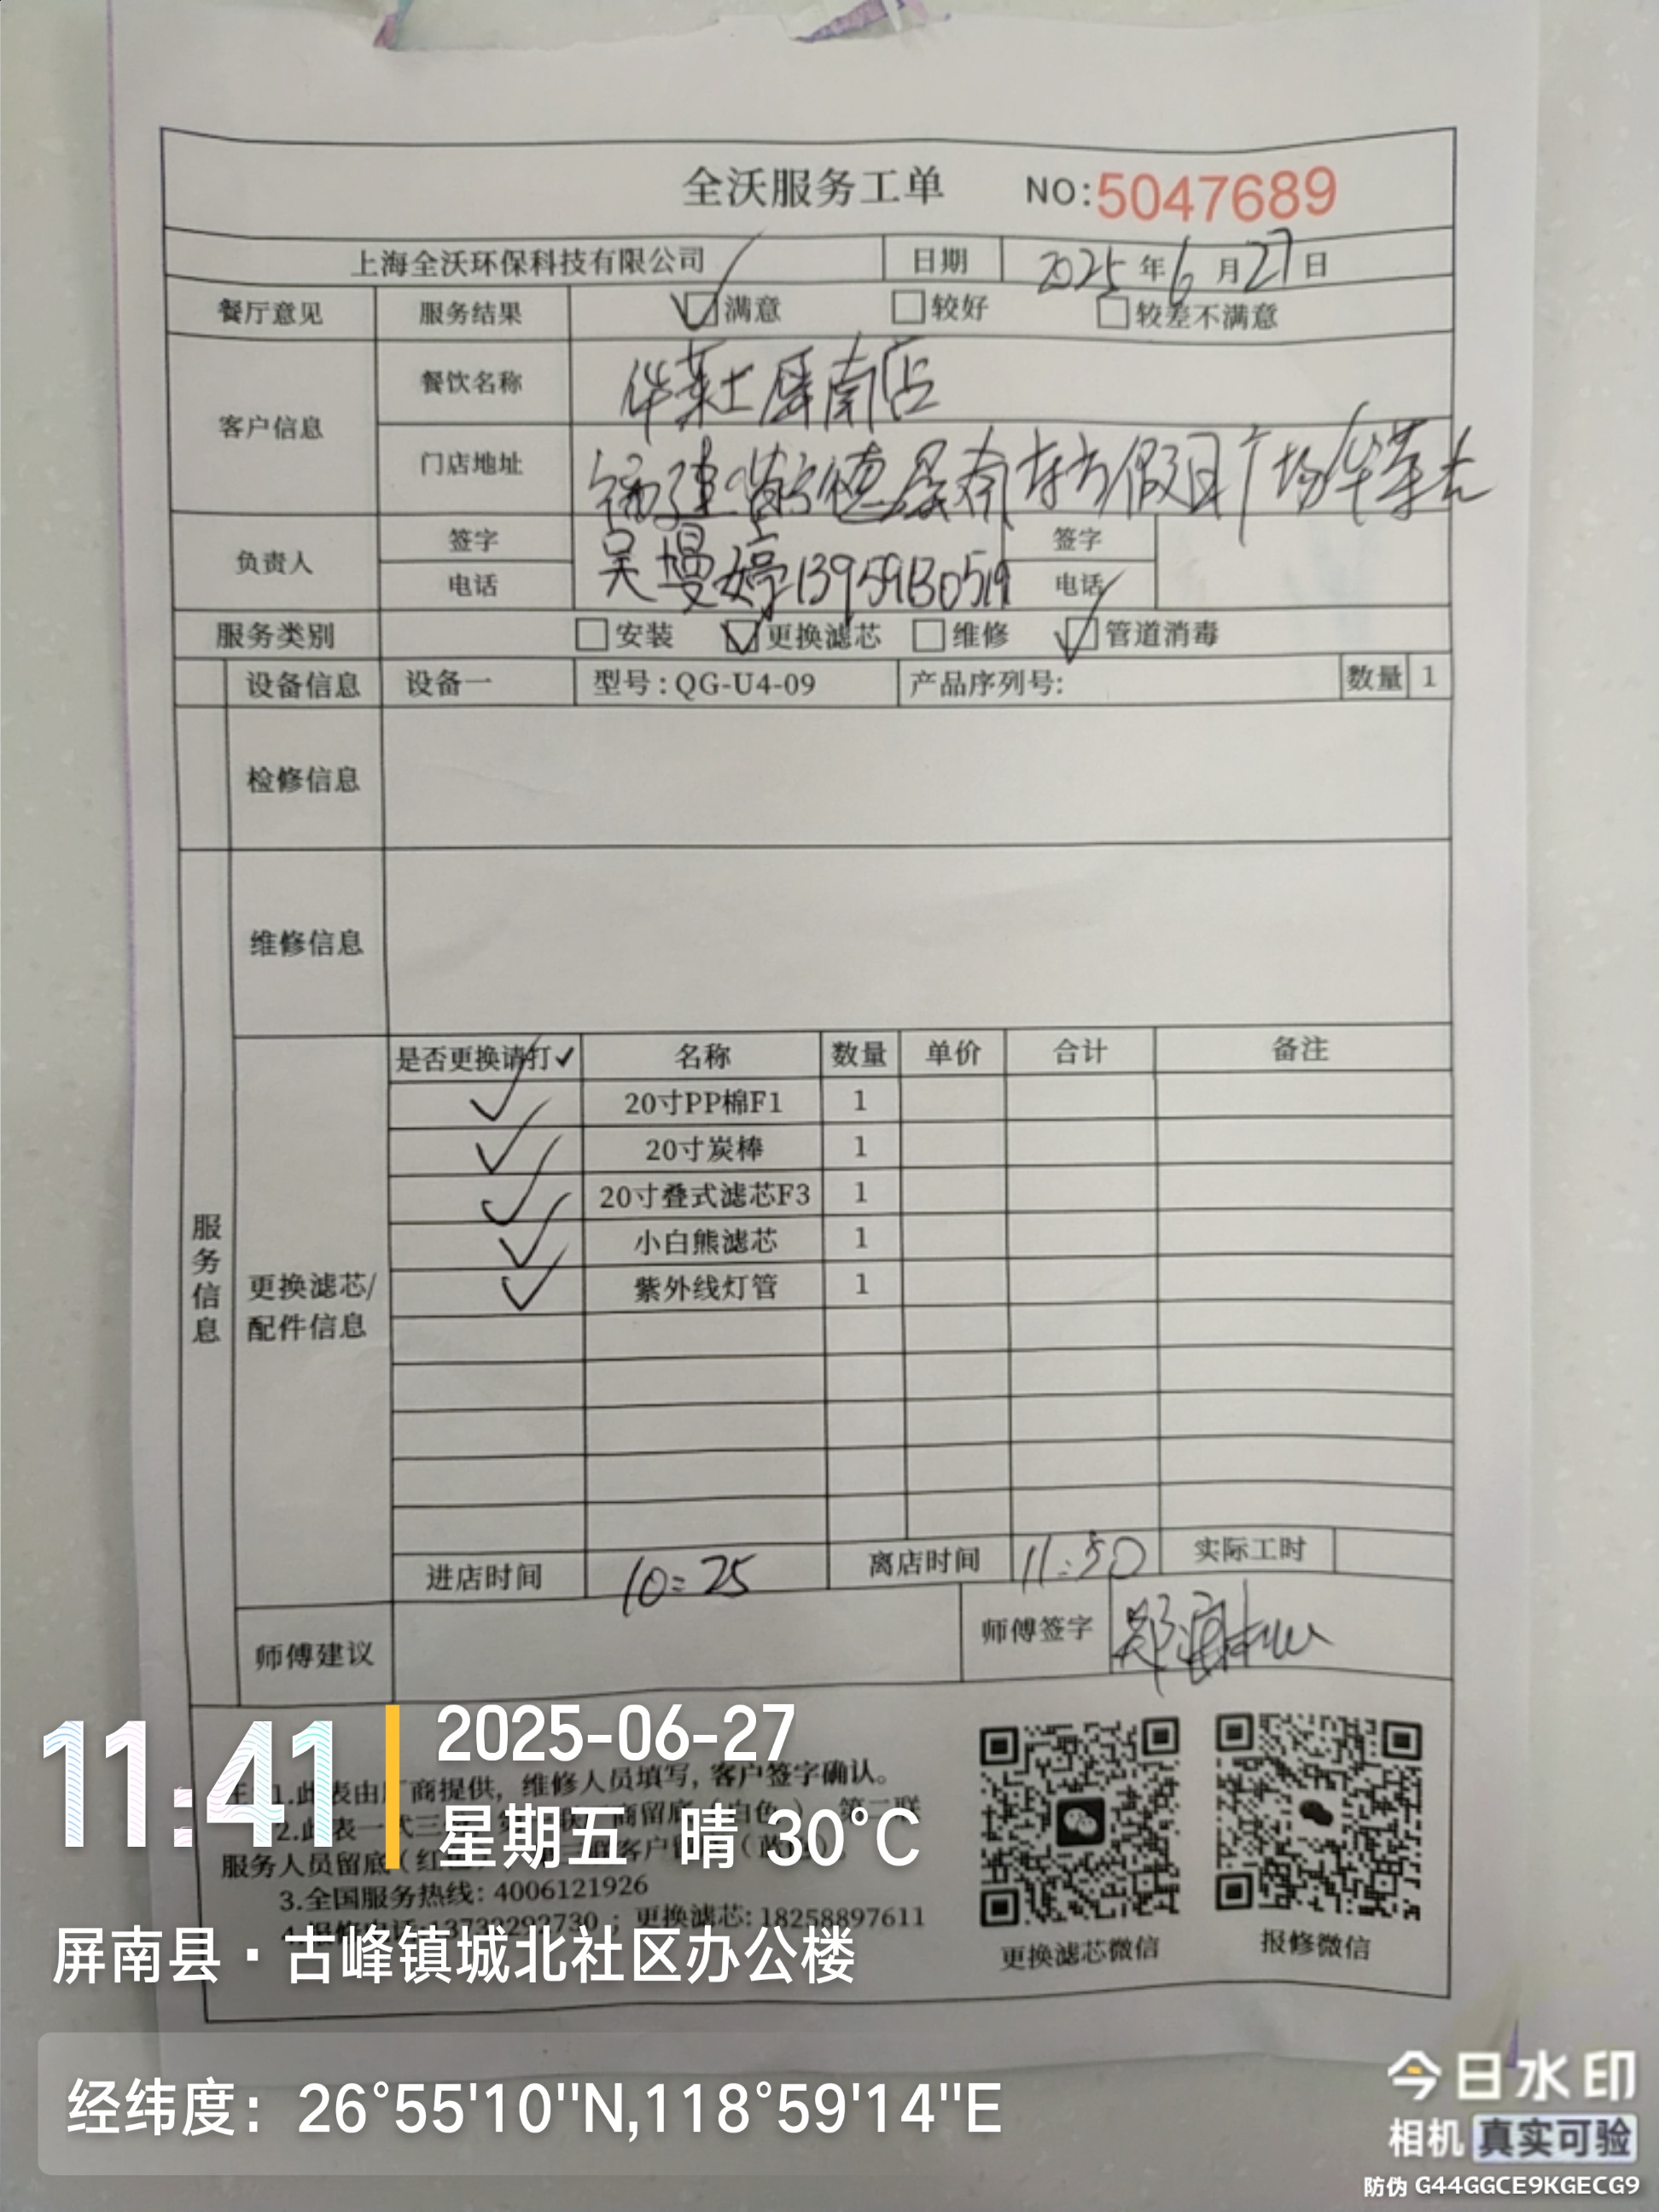 全沃服务工单 NO:5047689
上海全沃环保科技有限公司 日期 2025年6月27日
餐厅意见 服务结果 满意 较好 较差不满意
客户信息 餐饮名称 华莱士屏南店
门店地址 福建省宁德屏南东方假日广场华莱士
负责人 签字 吴墁婷 签字
电话 13959130519 电话
服务类别 安装 更换滤芯 维修 管道消毒
设备信息 设备一 型号:QG-U4-09 产品序列号: 数量 1
检修信息
维修信息
服务信息
更换滤芯/配件信息
是否更换请打✓ 名称 数量 单价 合计 备注
✓ 20寸PP棉F1 1
✓ 20寸炭棒 1
✓ 20寸叠式滤芯F3 1
✓ 小白熊滤芯 1
✓ 紫外线灯管 1
进店时间 10:25 离店时间 11:50 实际工时
师傅建议 师傅签字 郑
1.此表由厂商提供，维修人员填写，客户签字确认。
2.此表一式三
服务人员留底（红
3.全国服务热线：4006121926
4.报修电话:13732292730；更换滤芯：18258897611
更换滤芯微信 报修微信
11:41
2025-06-27
星期五 晴 30°C
屏南县·古峰镇城北社区办公楼
经纬度：26°55'10"N,118°59'14"E
今日水印
相机 真实可验
防伪 G44GGCE9KGECG9